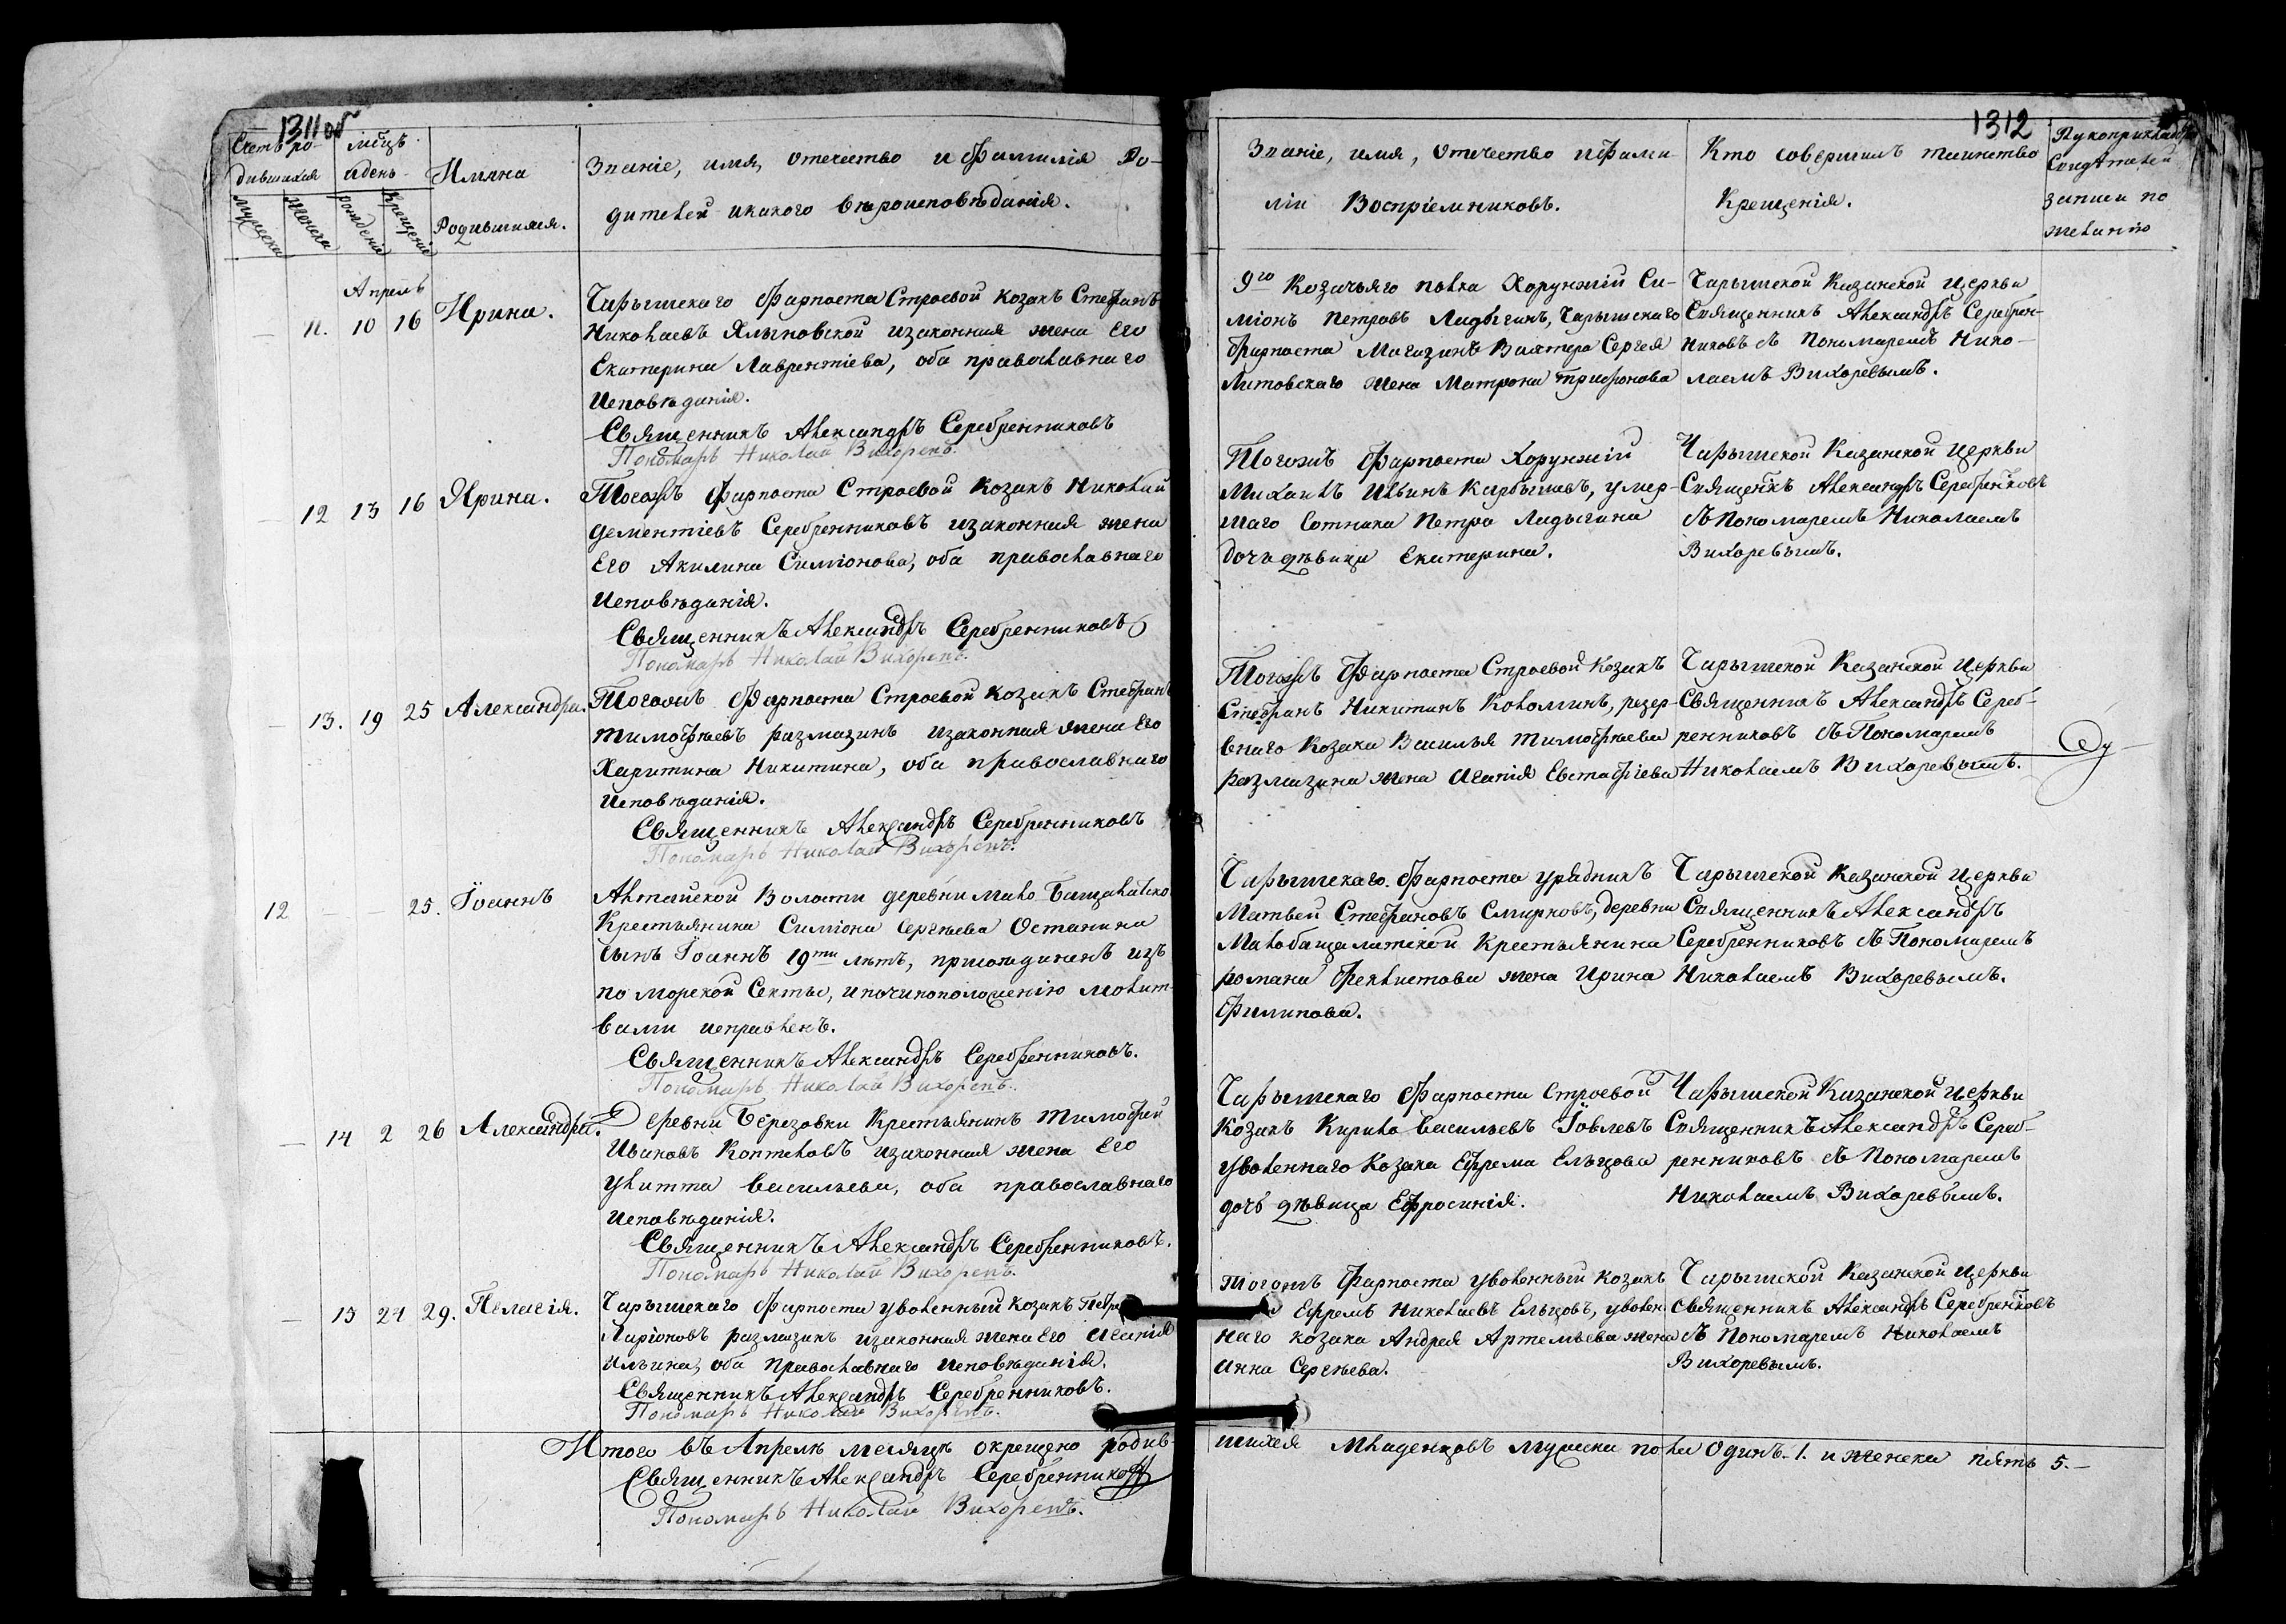 1311 об
Счетъ ро-
дившихся
мсцъ
и день
мужеска
женска
рожденія
крещенія
Имяна
Родившихся.
Званіе, имя, отечество и фамилія Ро-
дителей и какого вѣроисповѣданія.
Апрель
11. 10 16 Ирина.
Чарышскаго Фарпоста Строевой козакъ Стефанъ
Николаевъ Ялыновской и законная жена его
Екатерина Лаврентіева, оба православнаго
Исповѣданія.
Священникъ Александръ Серебренниковъ
Пономарь Николай Вихоревъ.
12 13 16 Ирина.
Тогожъ Фарпоста Строевой козакъ Николай
Дементіевъ Серебренниковъ и законная жена
Его Акилина Симіонова, оба православнаго
Исповѣданія.
Священникъ Александръ Серебренниковъ
Пономарь Николай Вихоревъ.
13. 19 25 Александра.
Тогожъ Фарпоста Строевой козакъ Стефанъ
Тимофѣевъ размазинъ и законная жена Его
Харитина Никитина, оба православнаго
Исповѣданія.
Священникъ Александръ Серебренниковъ
Пономарь Николай Вихоревъ.
12 — — 25. Іоаннъ
Алтайской Волости деревни Мало-Бащалатско
Крестьянина Симіона Сергѣева Останина
сынъ Іоаннъ 19ти лѣтъ, присоединенъ изъ
поморской Секты, и по чиноположенію молит-
вами исправленъ.
Священникъ Александръ Серебренниковъ.
Пономарь Николай Вихоревъ.
14 2 26 Александра.
Деревни Березовки Крестьянинъ Тимофей
Ивановъ Коптеловъ и законная жена Его
Улитта Васильева, оба православнаго
Исповѣданія.
Священникъ Александръ Серебренниковъ.
Пономарь Николай Вихоревъ.
15 27 29. Пелагія.
Чарышскаго Фарпоста уволенный козакъ
Ларіоновъ размазинъ и законная жена Его Агапія
Ильина, оба православнаго исповѣданія.
Священникъ Александръ Серебренниковъ.
Пономарь Николай Вихоревъ.
Итого въ Апрелѣ месяцѣ окрещено родив-
Священникъ Александръ Серебренниковъ
Пономарь Николай Вихоревъ.
1312
Званіе, имя, отечество и фами-
ліи Воспріемниковъ.
Кто совершилъ таинство
Крещенія.
Рукоприкладство
Свидѣтелей
записи по
желанію
9го Козачьяго полка Хорунжій Си-
міонъ Петровъ Ладыгинъ, Чарышскаго
Фарпоста Магазинъ Вахтера Сергея
Литовскаго жена Матрона Трифонова
Чарышской Казанской Церкви
Священникъ Александръ Серебрен-
никовъ съ Пономаремъ Нико-
лаемъ Вихоревымъ.
Тогожъ Фарпоста Хорунжій
Михаилъ Ильинъ Карбышевъ, умер-
шаго Сотника Петра Ладыгина
дочь дѣвица Екатерина.
Чарышской Казанской Церкви
Священикъ Александръ Серебрениковъ
съ Пономаремъ Николаемъ
Вихоревымъ.
Тогожъ Фарпоста Строевой козакъ
Стефанъ Никитинъ Коломинъ, резер-
внаго козака Василья Тимофѣева
размазина жена Агапія Евстафіева
Чарышской Казанской Церкви
Священникъ Александръ Сереб-
ренниковъ съ Пономаремъ
Николаемъ Вихоревымъ.
Чарышскаго Фарпоста урядникъ
Матвей Стефановъ Смирновъ, деревни
Малобащалатской Крестьянина
романа Феклистова жена Ирина
Филипова.
Чарышской Казанской Церкви
Священникъ Александръ
Серебренниковъ съ Пономаремъ
Николаемъ Вихоревымъ.
Чарышскаго Фарпоста Строевой
Козакъ Кирило Васильевъ Іовлевъ
уволеннаго Козака Ефрема Ельцова
дочь дѣвица Ефросинія.
Чарышской Казанской Церкви
Священникъ Александръ Сереб-
ренниковъ съ Пономаремъ
Николаемъ Вихоревымъ.
Тогожъ Фарпоста уволенный козакъ
Ефремъ Николаевъ Ельцовъ, уволен
наго козака Андрея Артемьева жена
Анна Сергѣева.
Чарышской Казанской Церкви
Священникъ Александръ Серебрениковъ
съ Пономаремъ Николаемъ
Вихоревымъ.
шихся младенцовъ мужска пола Одинъ. 1. и женска пять 5.—